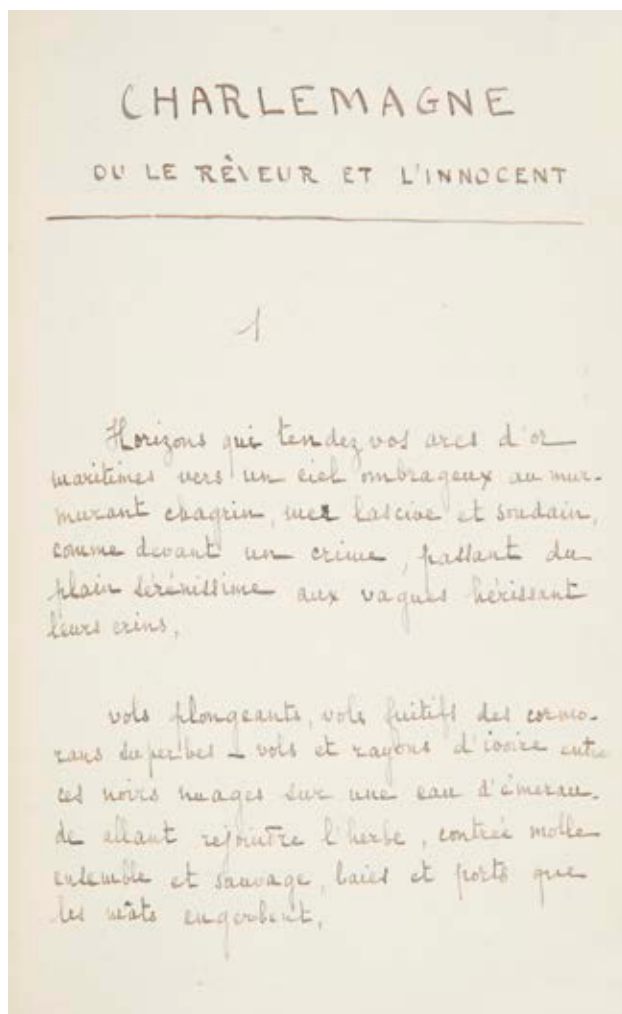 CHARLEMAGNE
OU LE RÊVEUR ET L'INNOCENT
1
Horizons qui tendez vos arcs d'or
maritimes vers un ciel ombrageux au mur-
murant chagrin, mer lascive et soudain,
comme devant un crime, passant du
plain sérénissime aux vagues hérissant
leurs crins,
vols plongeants, vols fuitifs des cormo-
rans superbes – vols et rayons d'ivoire entre
ces noirs nuages sur une eau d'émerau-
de allant rejointre l'herbe, contrée molle
ensemble et sauvage, baies et ports que
les mâts engerbent,